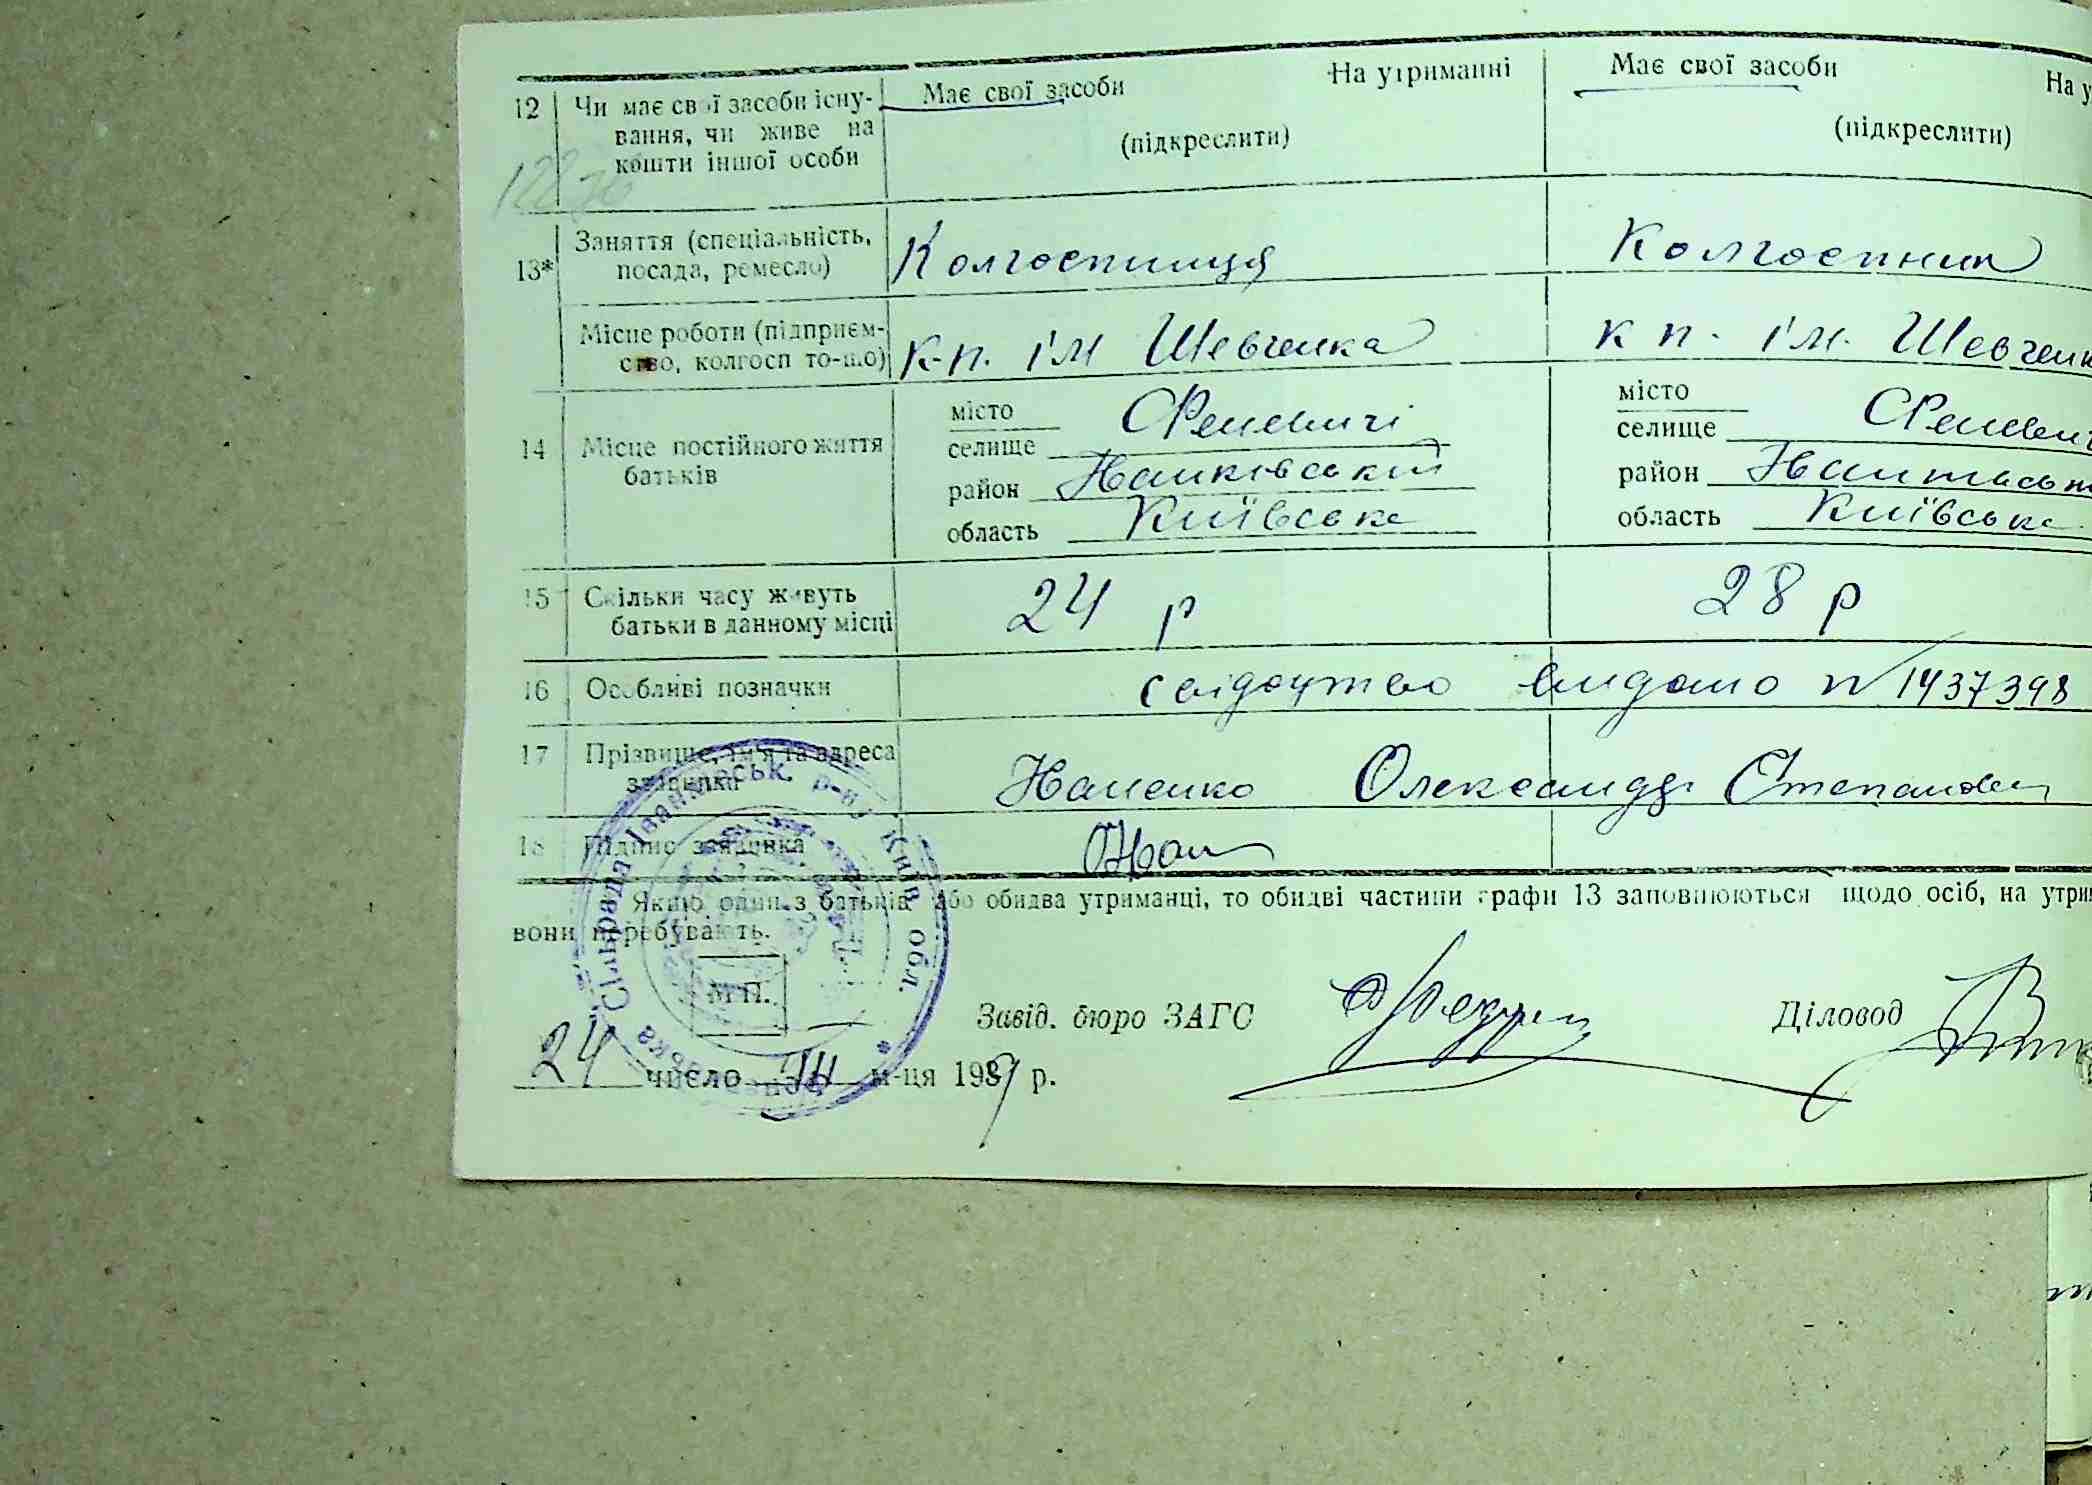 12 Чи має свої засоби існу- Має свої засоби На утриманні Має свої засоби На у
вання, чи живе на (підкреслити) (підкреслити)
кошти іншої особи
13* Заняття (спеціальність, Колгоспниця Колгоспник
посада, ремесло)
Місце роботи (підприєм- к-п. ім Шевченка к п. ім. Шевченк
ство, колгосп то-що)
14 Місце постійного життя місто місто
батьків селище селище
район Іванківський район
область Київська область Київська
15 Скільки часу живуть 24 р 28 р
батьки в данному місці
16 Особливі позначки свідоцтво видано № 1437398
17 Прізвище, ім'я та адреса Олександр Степанович
заявника
18 Підпис заявника
Якщо один з батьків або обидва утриманці, то обидві частини графи 13 заповнюються щодо осіб, на утри
вони перебувають.
Сільрада Іванківськ. р-ну Київ. обл.
М П.
Завід. бюро ЗАГС Діловод
24 число м-ця 19 р.